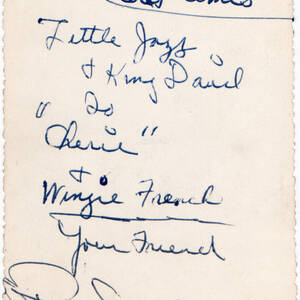 Little Jazz
& King David
"To
Cherie"
&
Wingie French
Your Friend